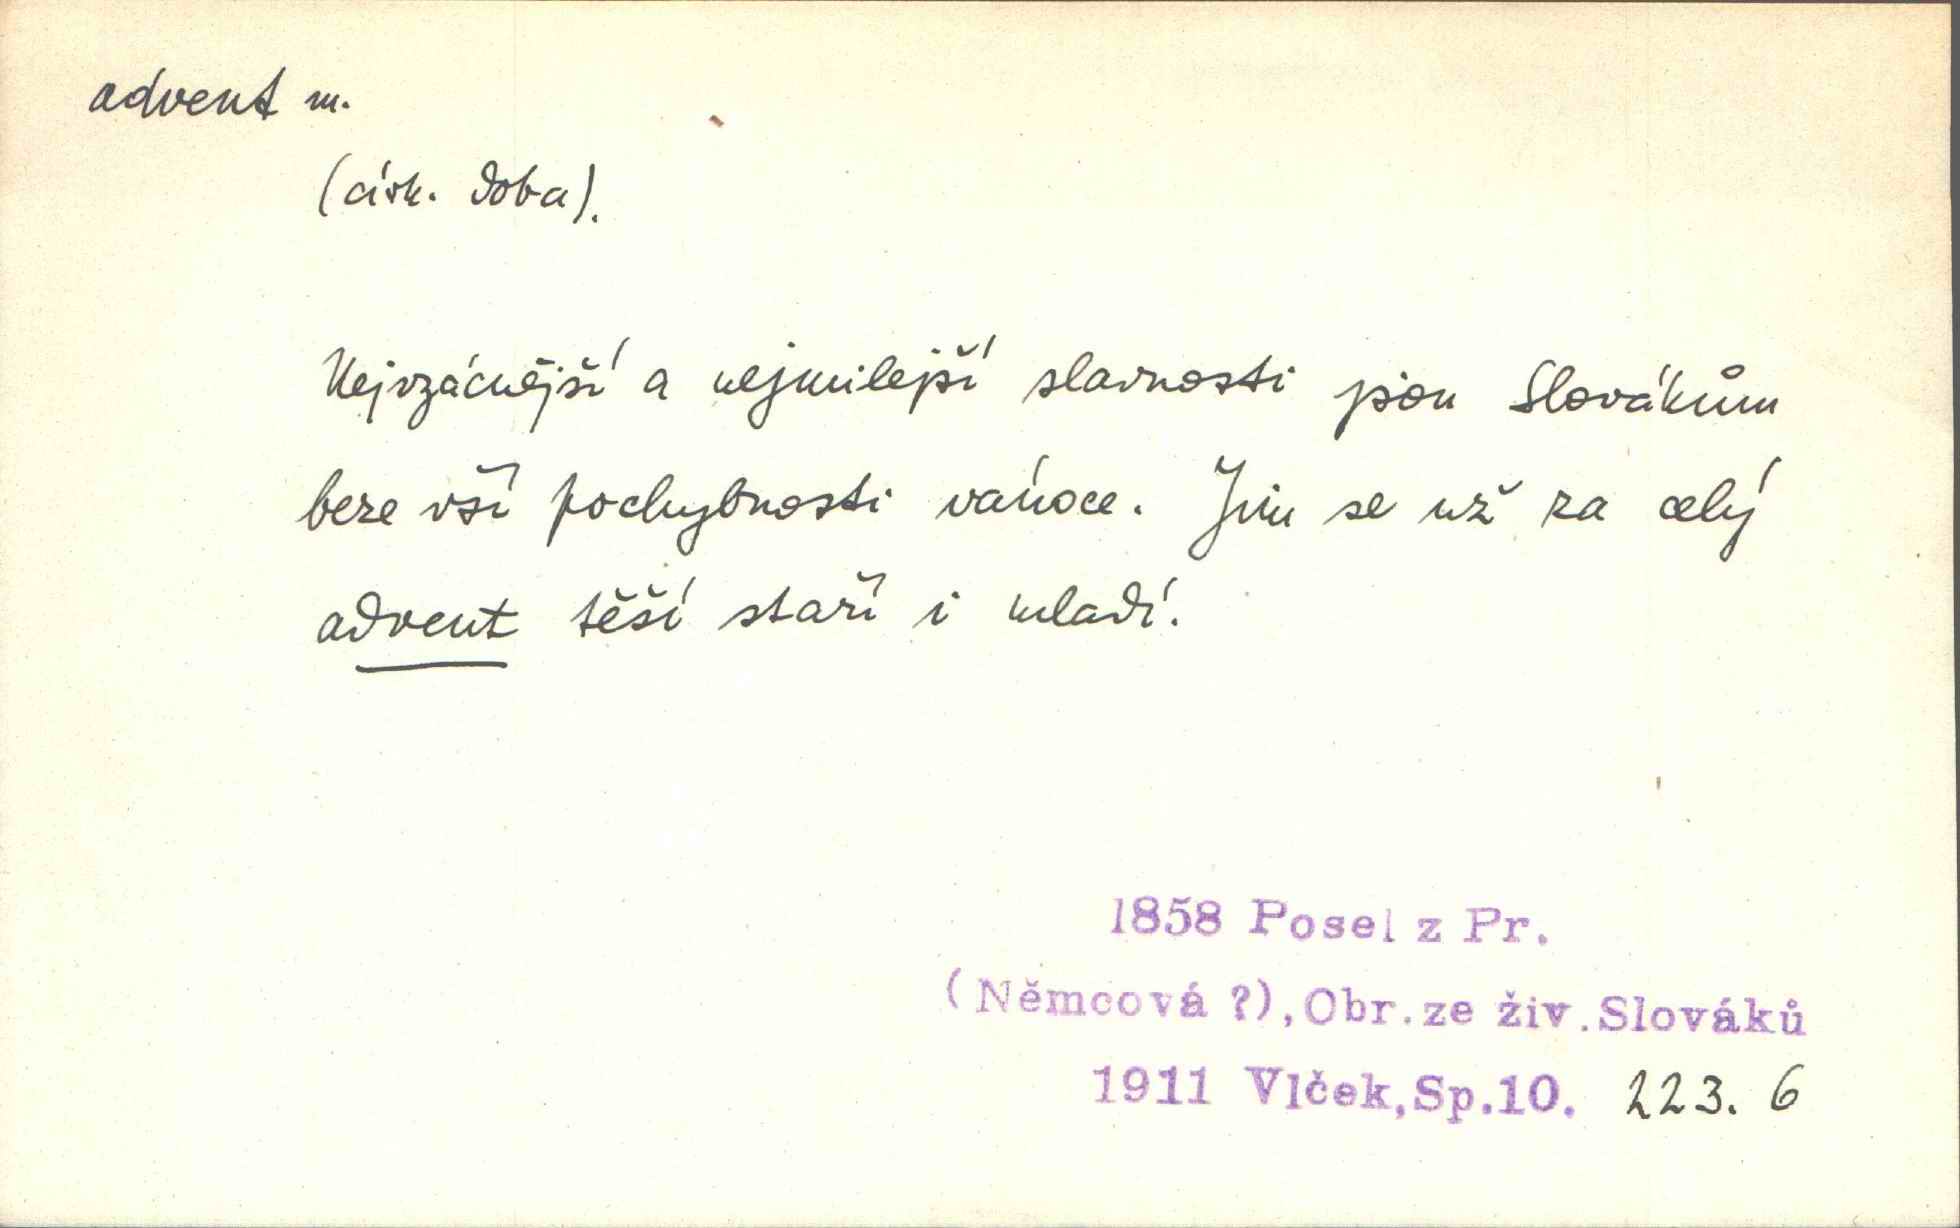 advent m.
(círk. doba).
Nejvzácnější a nejmilejší slavnosti jsou Slovákům
beze vší pochybnosti vánoce. Jim se už za celý
advent těší staří i mladí.
1858 Posel z Pr.
(Němcová ?), Obr. ze živ. Slováků
1911 Vlček, Sp. 10. 223. 6